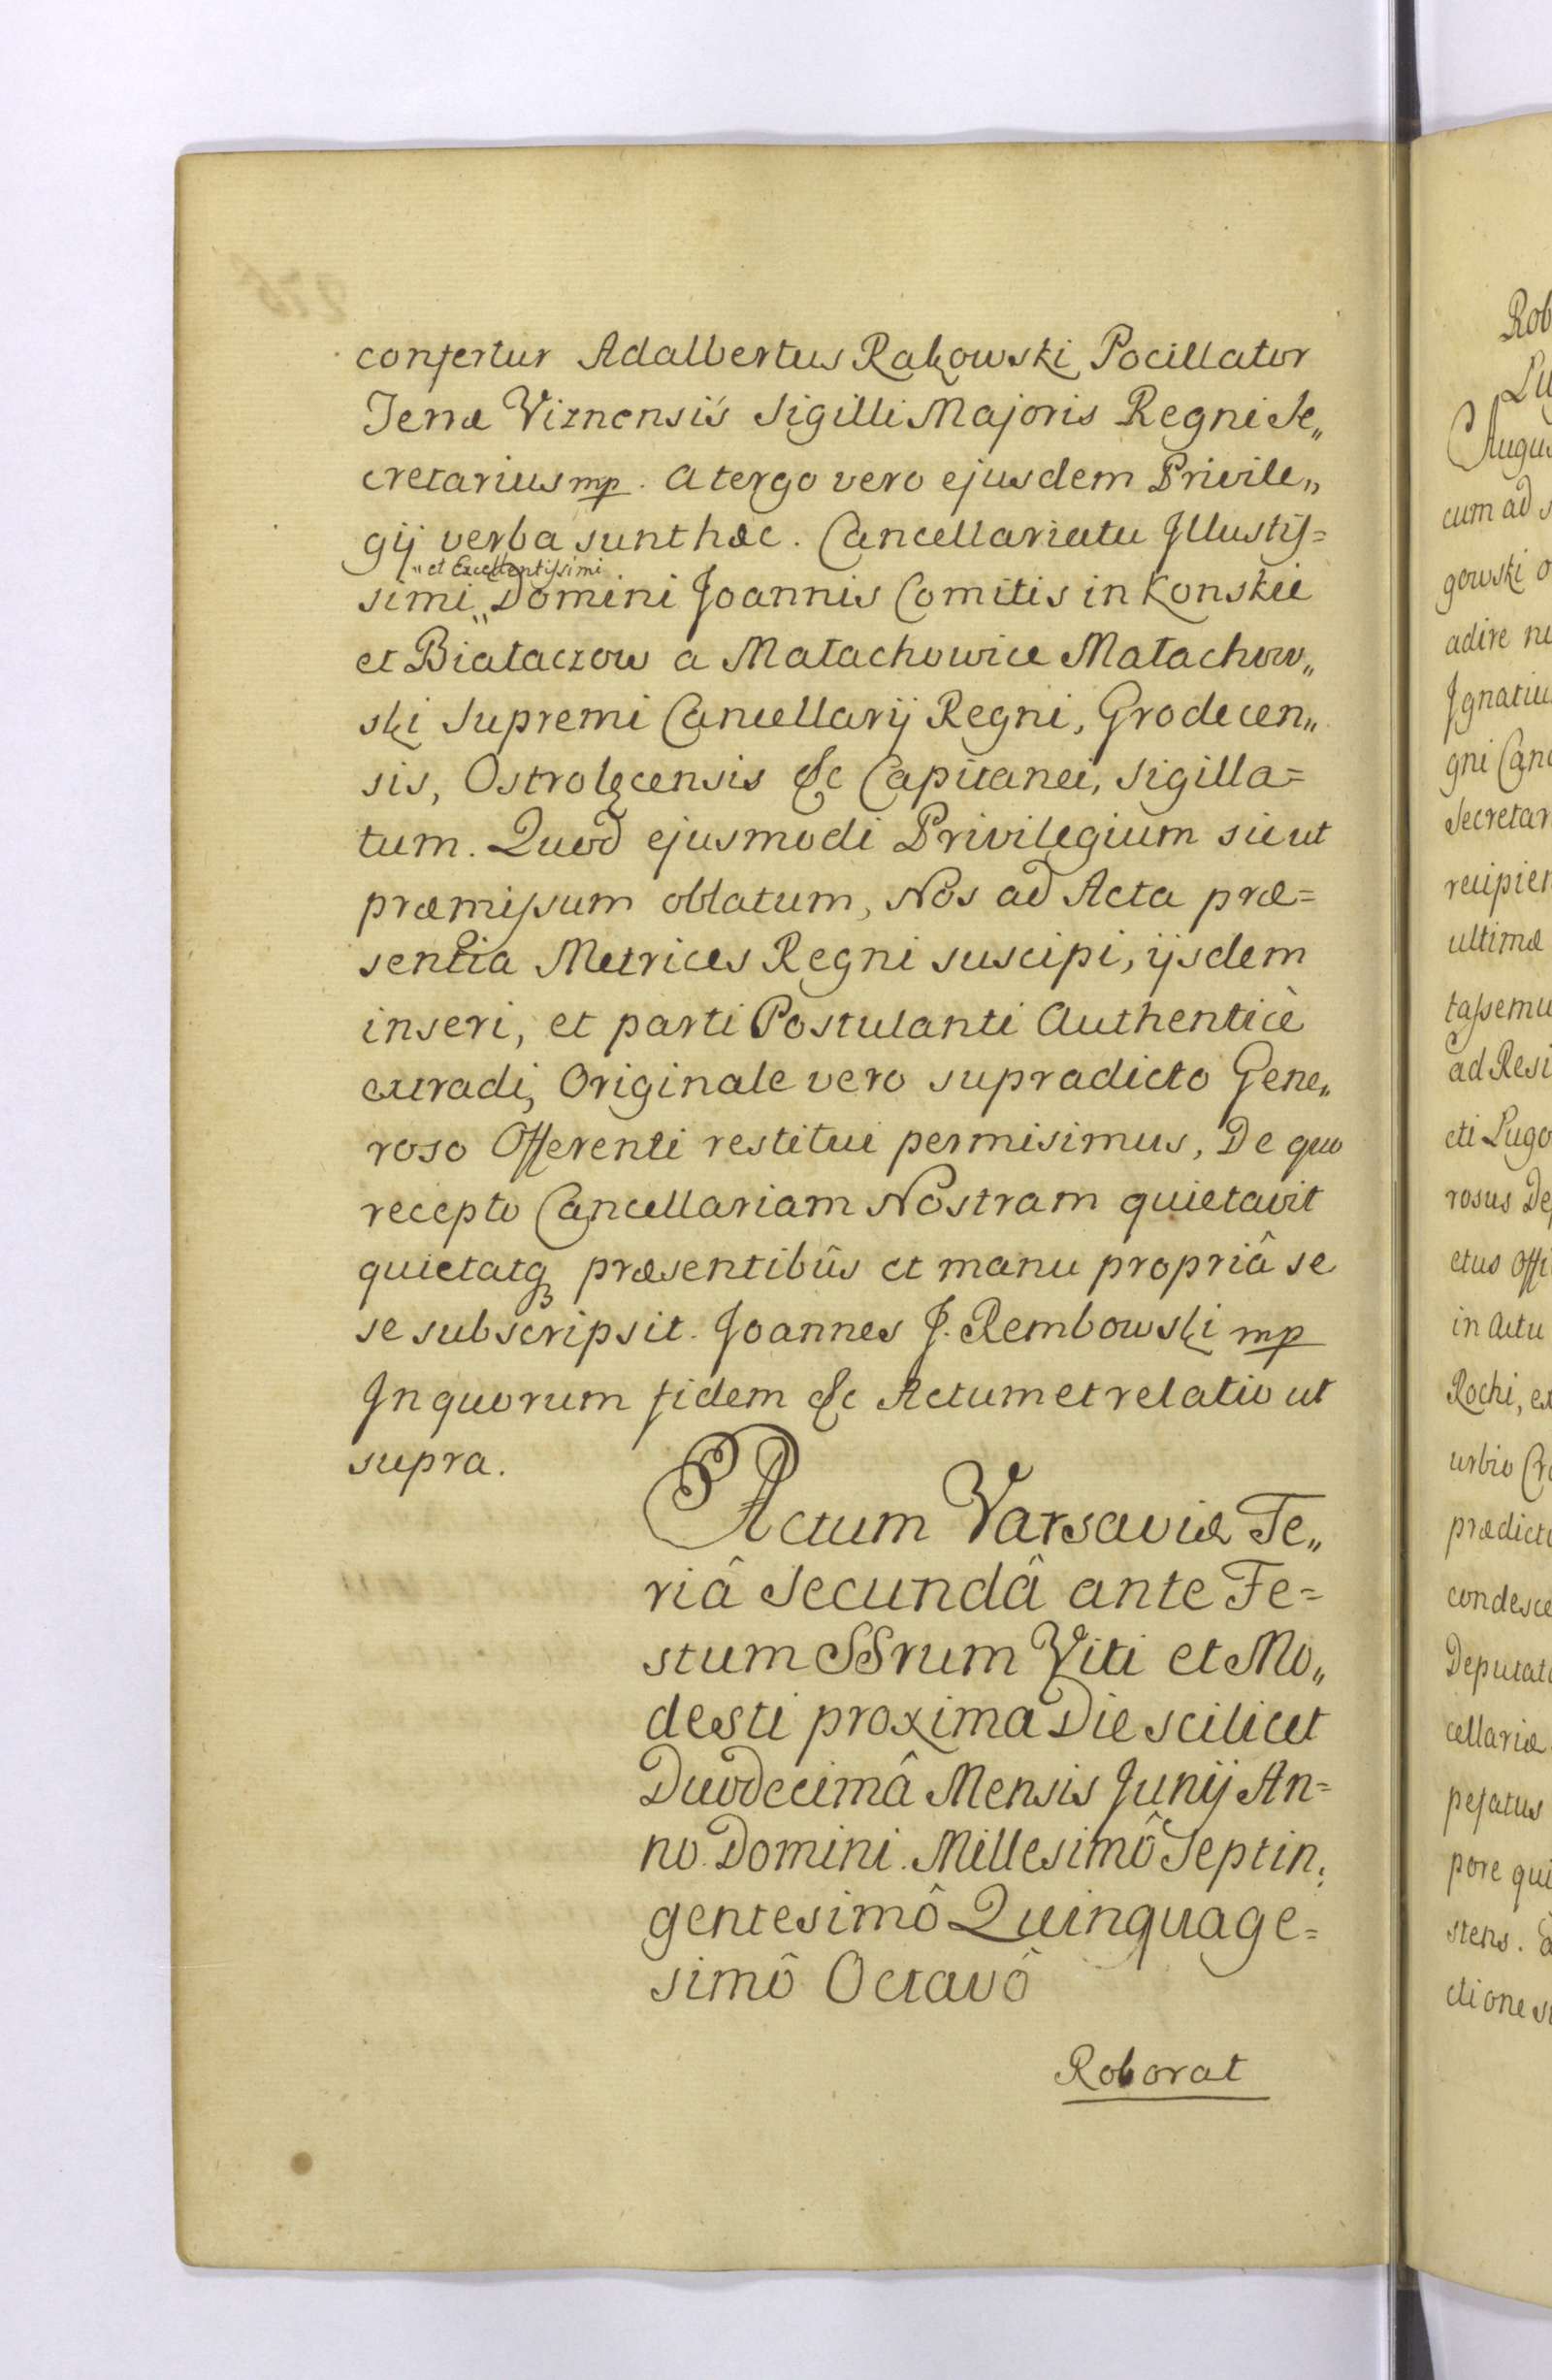 confertur Adalbertus Rakowski Pocillator
Terræ Viznensis Sigilli Majoris Regni Se„
cretarius mp. a tergo vero ejusdem Privile„
gij verba sunt hæc. Cancellariatu Jllustiſ=
„et Excellentiſsimi
simi„ Domini Joannis Comitis in Konskie
et Białaczow a Małachowice Małachow„
ski Supremi Cancellarij Regni, Grodecen„
sis, Ostrolęcensis &c Capitanei, Sigilla=
tum. Quod ejusmodi Privilegium sicut
præmiſsum oblatum, Nos ad Acta præ=
sentia Metrices Regni suscipi, ijsdem
inseri, et parti Postulanti Authenticè
extradi, Originale vero supradicto Gene„
roso Offerenti restitui permisimus, De quo
recepto Cancellariam Nostram quietavit
quietatq3 præsentibûs et manu propriâ se
se subscripsit. Joannes J. Rembowski mp
Jn quorum fidem &c Actum et relatio ut
supra.
Actum Varsaviæ Fe„
riâ Secundâ ante Fe=
stum SSrum Viti et Mo„
desti proxima Die scilicet
Duodecimâ Mensis Junij An=
no Domini. Millesimô Septin„
gentesimô Quinquage=
simô Octavô
Roborat
Rob
Lu
Augus
cum ad s
gowski o
adire nu
Jgnatiu
gni Canc
Secretar
recipien
ultimæ
taſsemu
ad Resi
cti Lugo
rosus De
etus Offi
in actu
Rochi, ex
urbio Cra
prædicto
condesce
Deputat
cellariæ
pore qui
stens.
ctione s